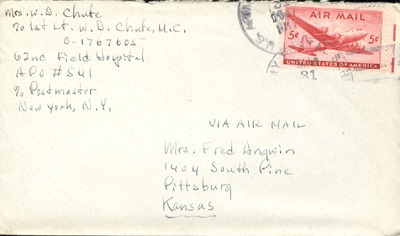 Mrs. W. D. Chute
℅ 1st Lt. W. D. Chute, M.C.
O-1767605
62nd Field Hospital
APO #541
℅ Postmaster
New York, N.Y.
AIR MAIL
5¢ 5¢
UNITED STATES OF AMERICA
VIA AIR MAIL
Mrs. Fred Angwin
1404 South Pine
Pittsburg
Kansas